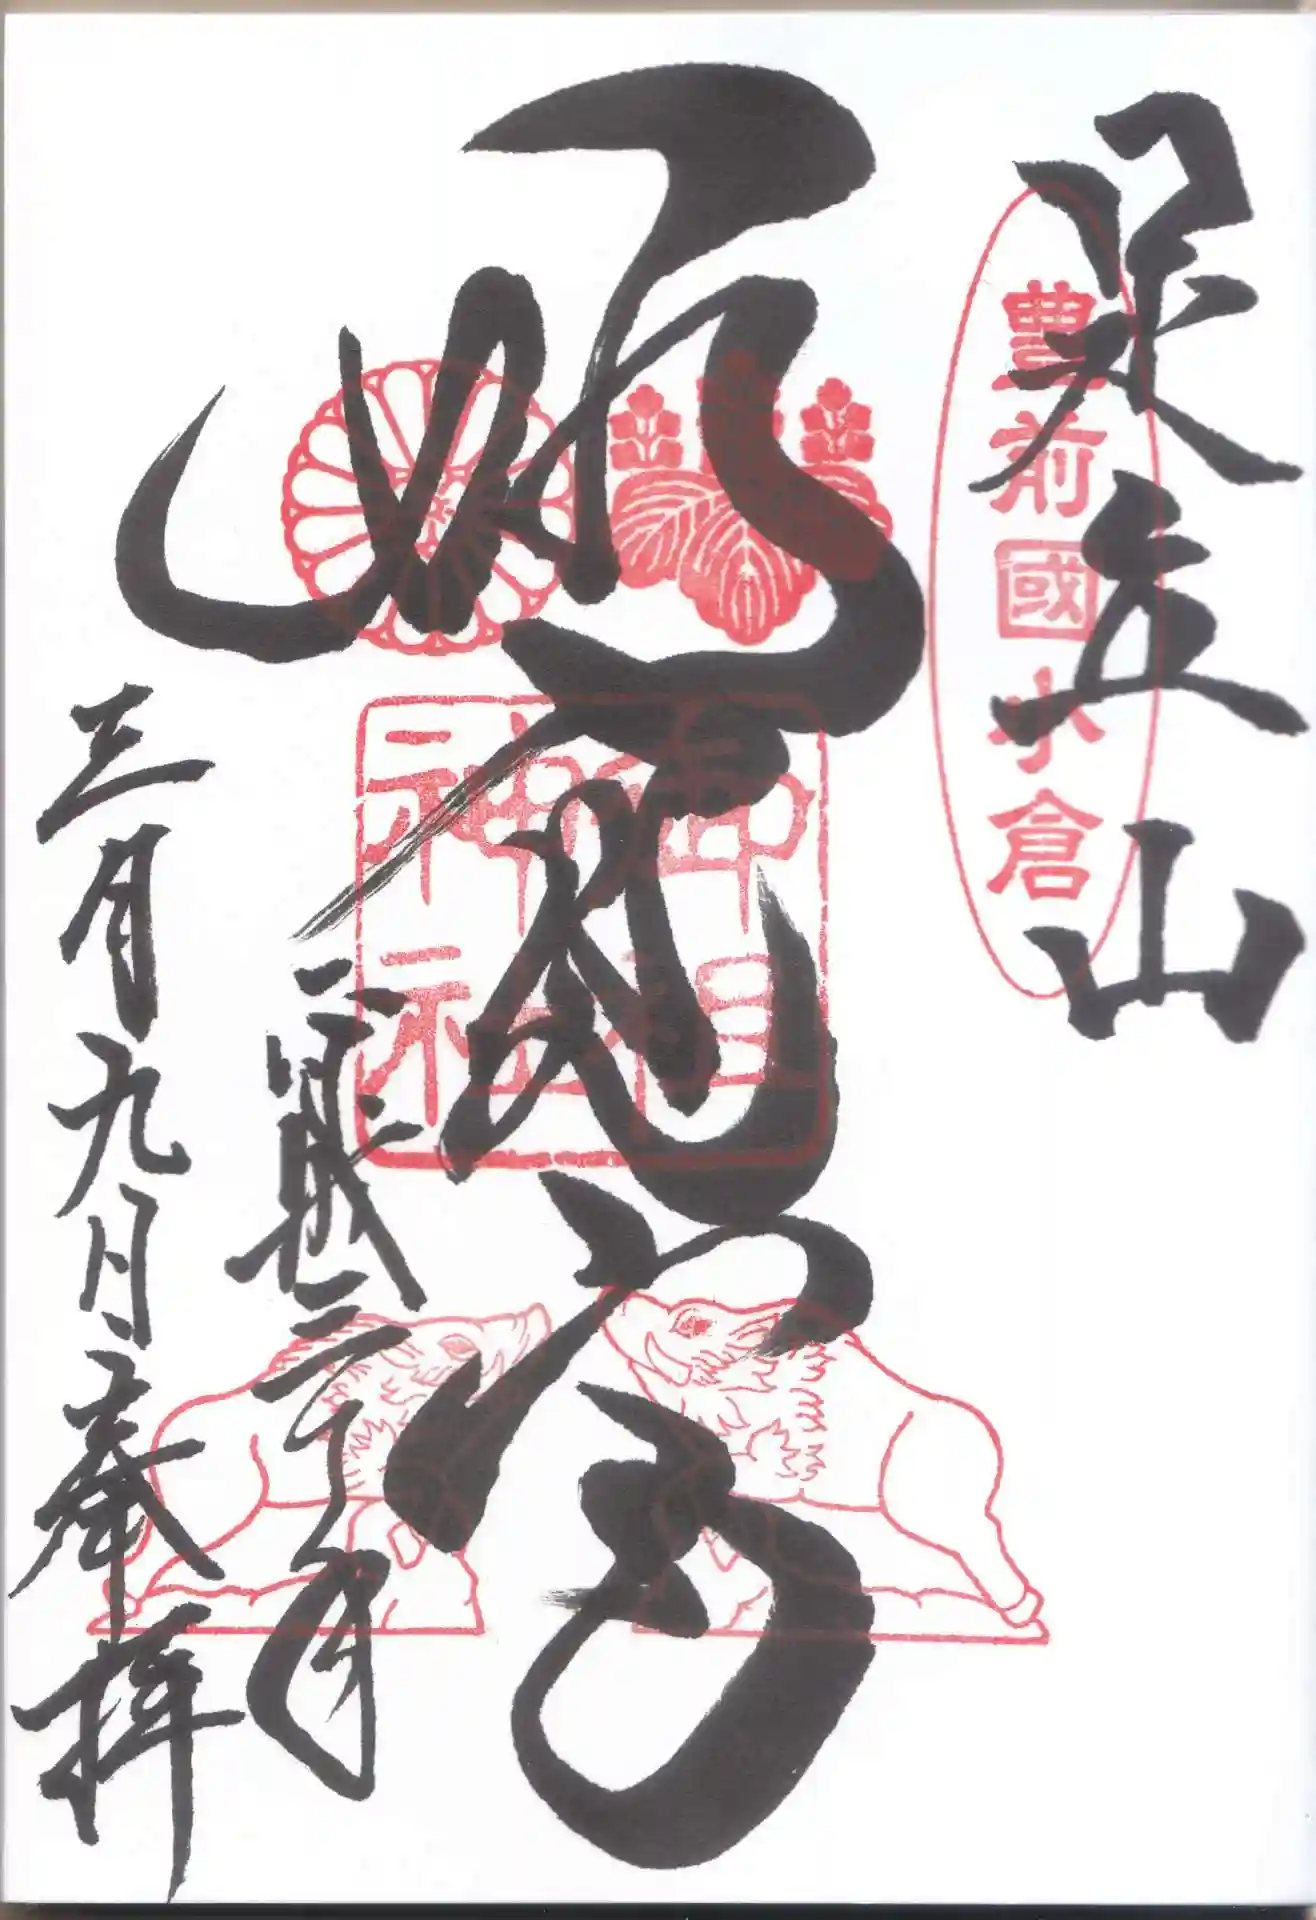 足立山
豊前國小倉
妙見宮
御祖神社
平成三十年
三月九日奉拝